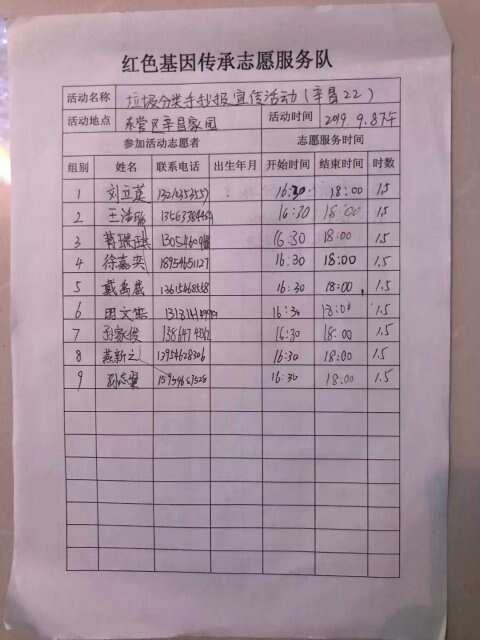 红色基因传承志愿服务队
活动名称 垃圾分类手抄报宣传活动(辛昌22)
活动地点 东营区辛昌家园 活动时间 2019 9.8
参加活动志愿者 志愿服务时间
组别 姓名 联系电话 出生年月 开始时间 结束时间 时数
1 16:30 18:00 1.5
2 16:30 18:00 1.5
3 16:30 18:00 1.5
4 徐嘉奕 18954651127 16:30 18:00 1.5
5 16:30 18:00 1.5
6 16:30 18:00 1.5
7 孙家俊 16:30 18:00 1.5
8 燕新之 13954628306 16:30 18:00 1.5
9 16:30 18:00 1.5